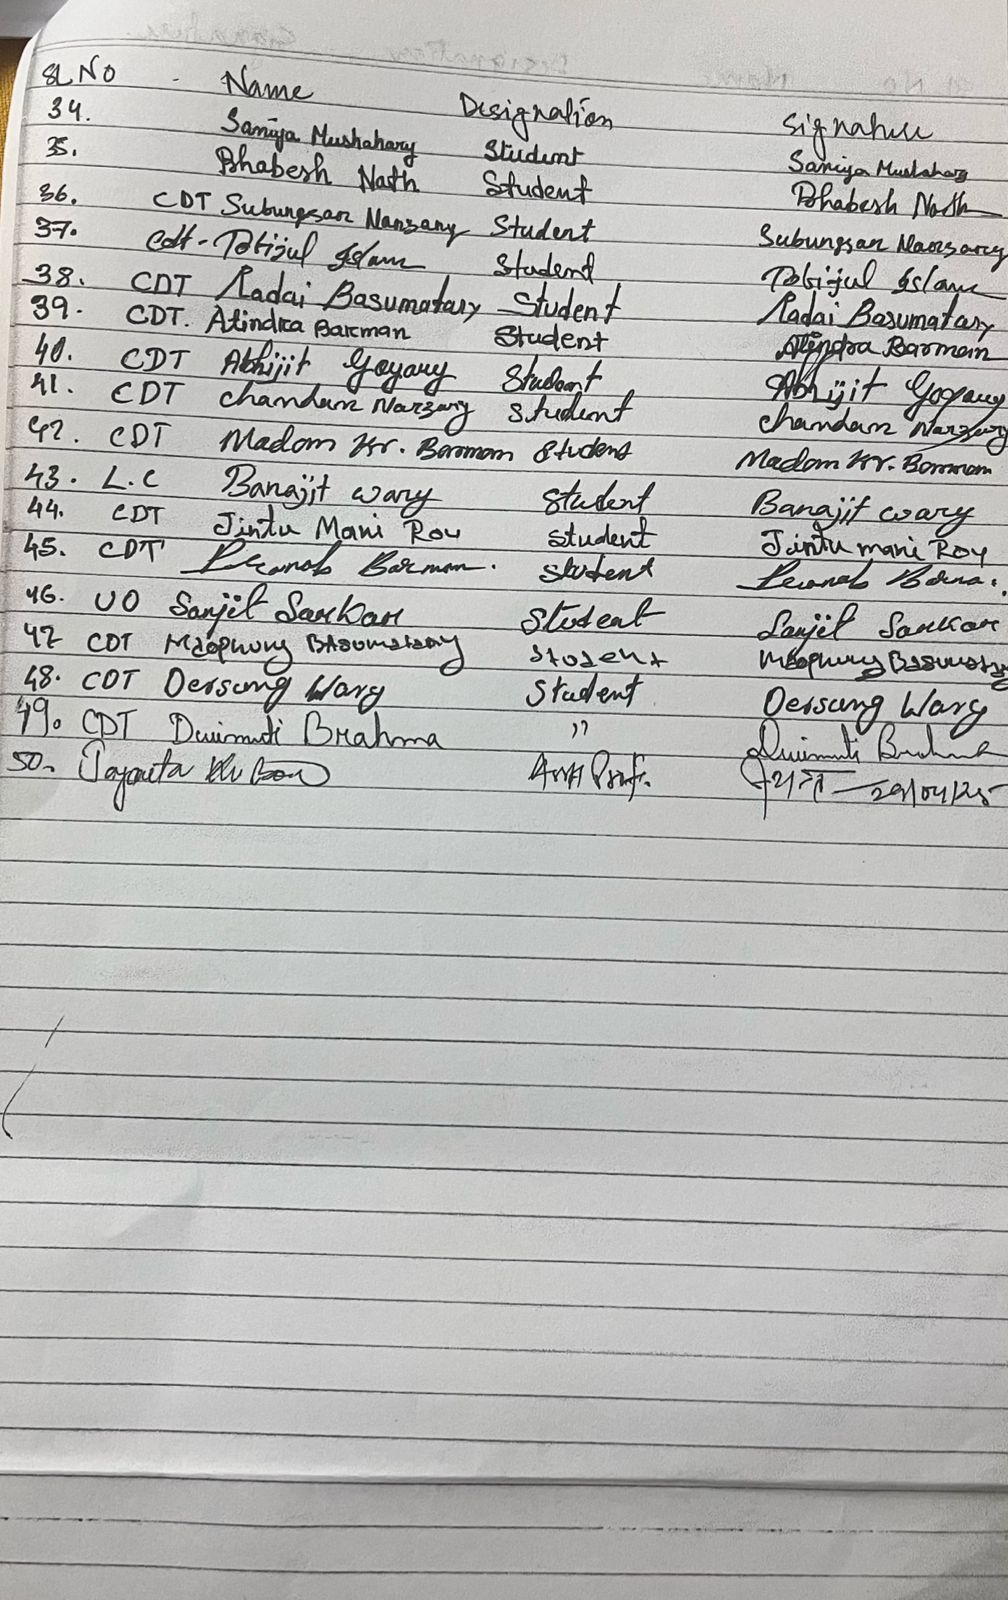 SL NO - Name Designation Signature
34. Saniya Mushahary Student Saniya Mushahary
35. Bhabesh Nath Student Bhabesh Nath
36. CDT Subungsar Narzary Student Subungsar Narzary
37. Cdt - Tobijul Islam Student Tobijul Islam
38. CDT Radai Basumatary Student Radai Basumatary
39. CDT. Atindra Barman Student Atindra Barman
40. CDT Abhijit Goyary Student Abhijit Goyary
41. CDT Chandan Narzary Student Chandan Narzary
42. CDT Madom Kr. Barman Student Madom Kr. Barman
43. L.C Banajit Wary Student Banajit Wary
44. CDT Jintu Mani Roy Student Jintu mani Roy
45. CDT Pranab Barman. Student Pranab
46. UO Sanjit Sarkar Student Sanjit Sarkar
47 CDT Basumatary Student Basumatary
48. CDT Dersung Wary Student Dersung Wary
49. CDT Dwimuti Brahma " Dwimuti Brahma
50. Jayanta Asst Prof.